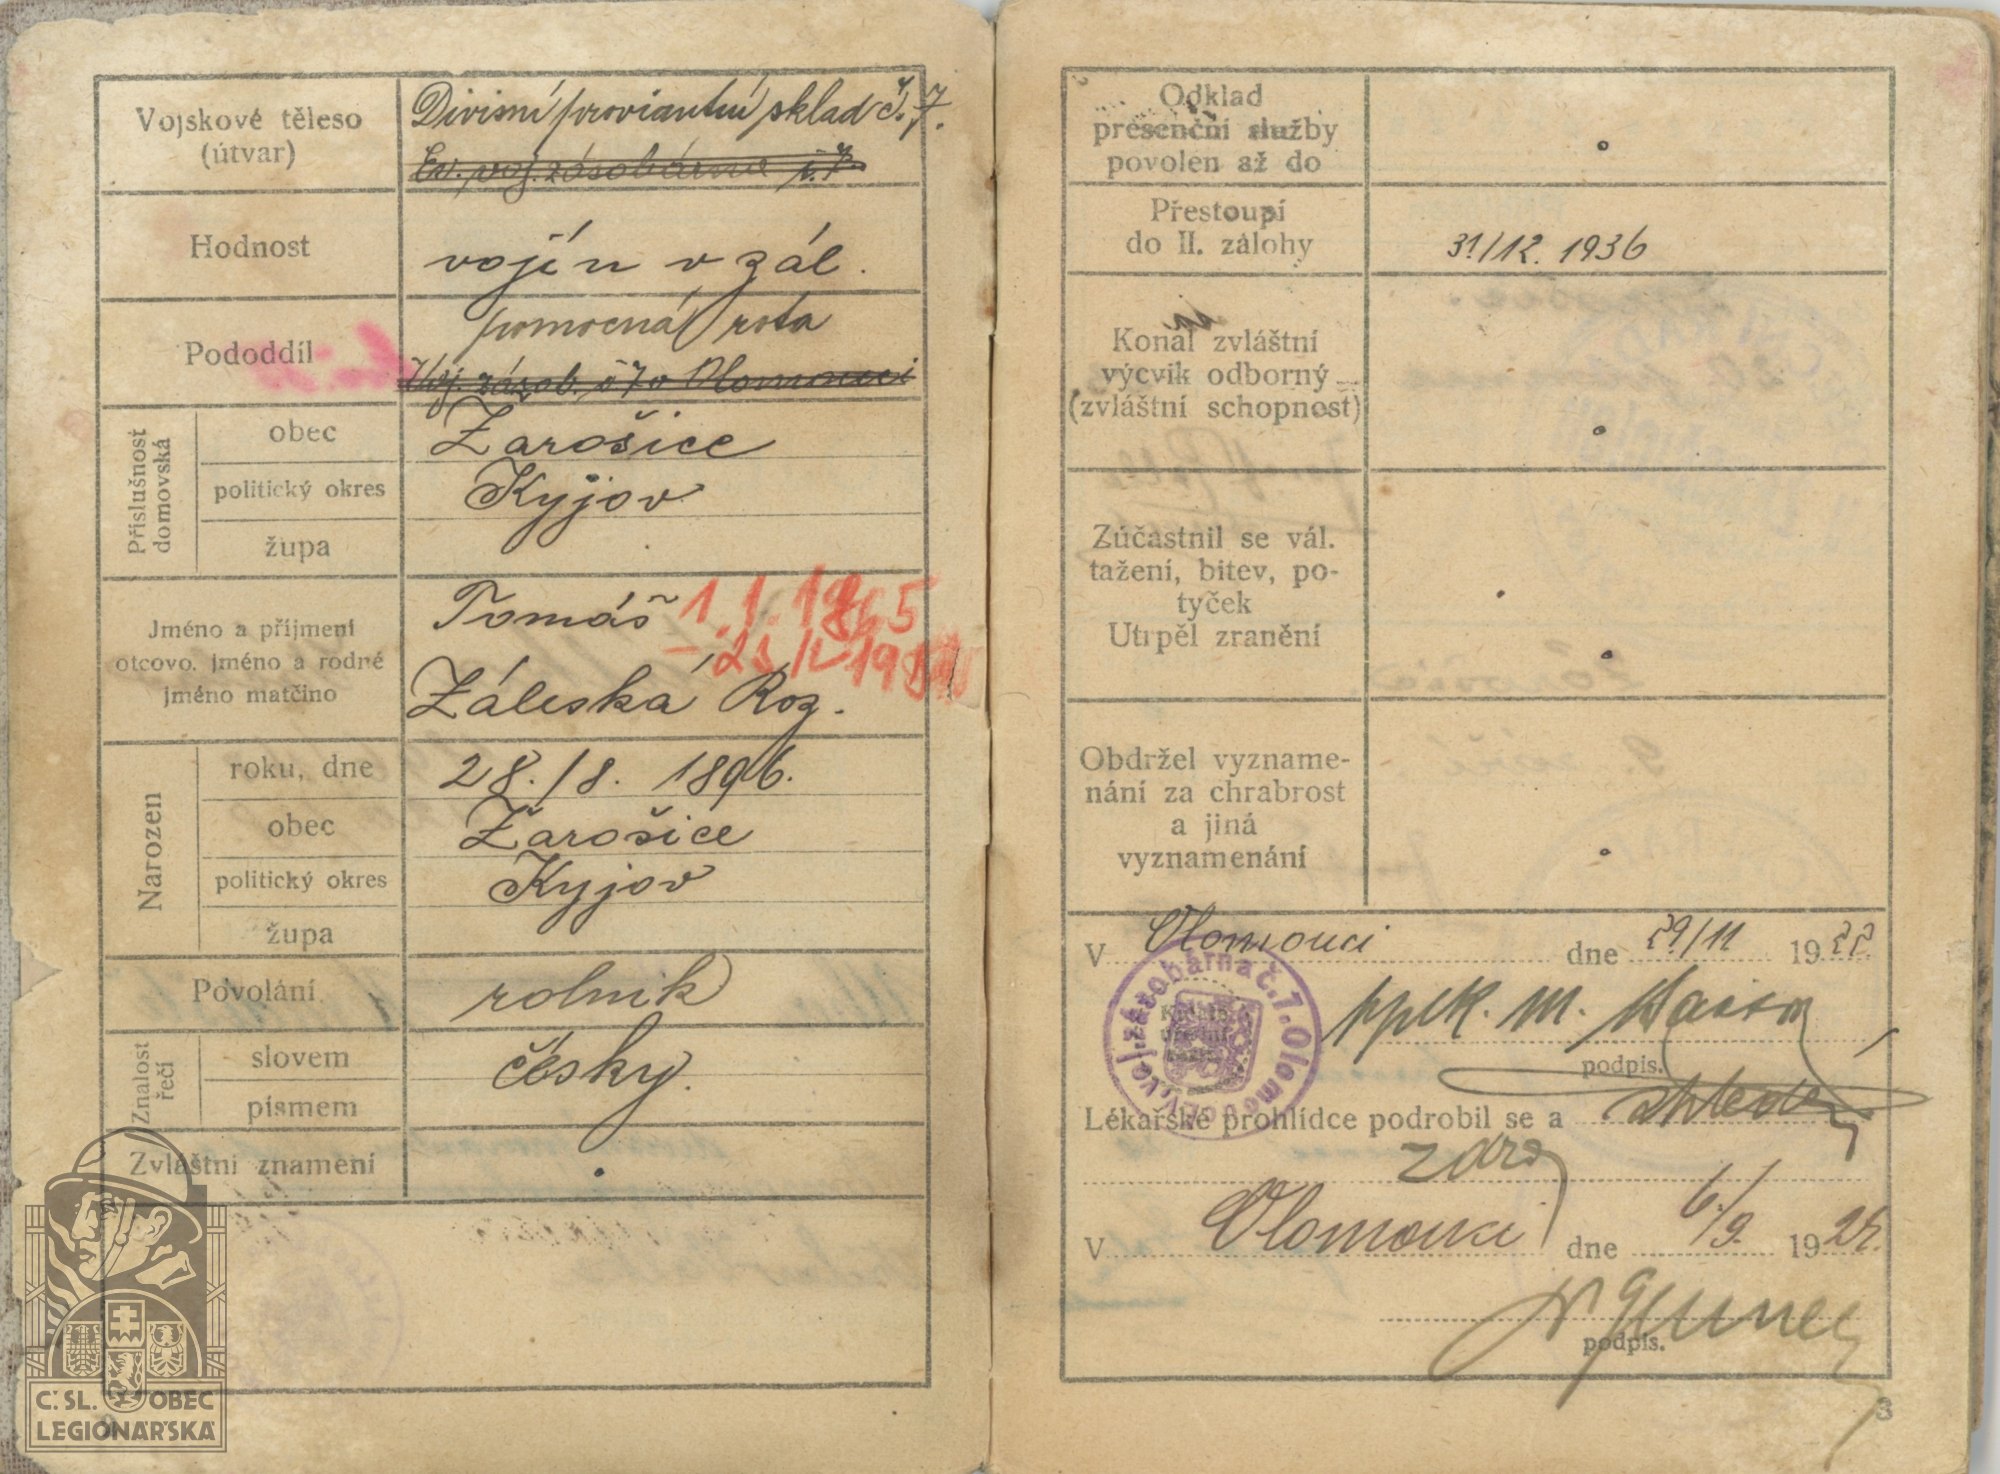 Vojskové těleso
(útvar)
Divisní proviantní sklad č. 7.
Ev. voj. zásobárna č. 7.
Hodnost
vojín v zál.
Pododdíl
pomocná rota
Voj. zásob. č 7 v Olomouci
Příslušnost
domovská
obec
Žarošice
politický okres
Kyjov
župa
Jméno a příjmení
otcovo, jméno a rodné
jméno matčino
Tomáš
1.1.1865
Záleská Roz.
Narozen
roku, dne
28./8. 1896.
obec
Žarošice
politický okres
Kyjov
župa
Povolání
rolník
Znalost
řečí
slovem
písmem
česky.
Zvláštní znamení
Č. SL. OBEC
LEGIONÁŘSKÁ
Odklad
presenční služby
povolen až do
Přestoupí
do II. zálohy
31/12. 1936
Konal zvláštní
výcvik odborný
(zvláštní schopnost)
Zúčastnil se vál.
tažení, bitev, po-
tyček
Utrpěl zranění
Obdržel vyzname-
nání za chrabrost
a jiná
vyznamenání
V Olomouci dne 29/11 1922.
voj. zásobárna č. 7. Olomouc
pplk. M.
podpis.
Lékařské prohlídce podrobil se a
zdráv
V Olomouci dne 6./9. 1925.
podpis.
3